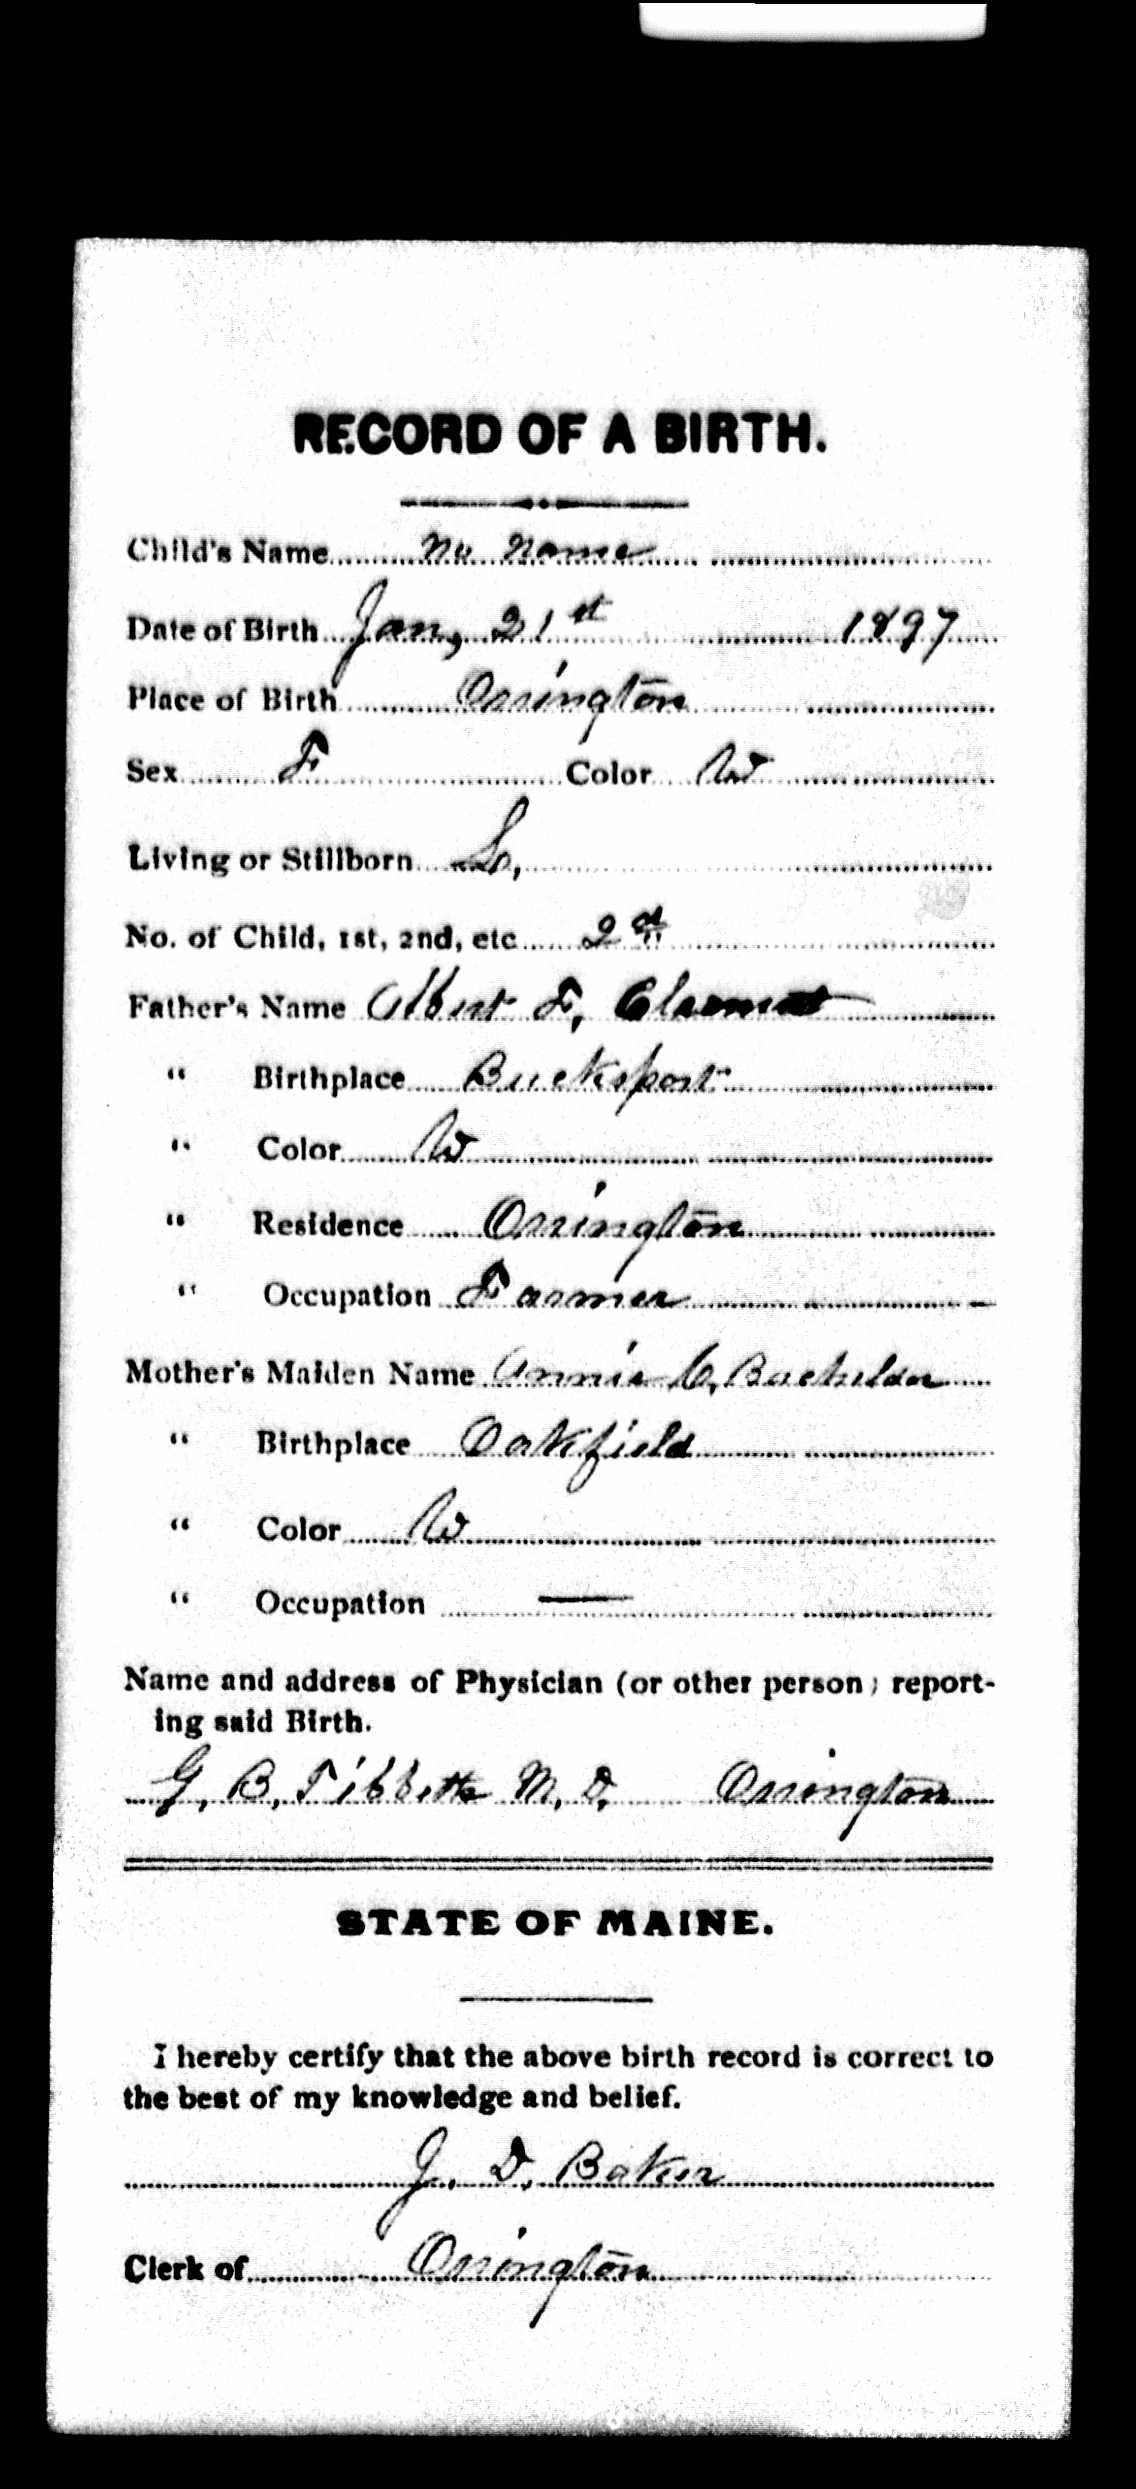 RECORD OF A BIRTH.
Child's Name No Name
Date of Birth Jan, 21st 1897
Place of Birth Orrington
Sex F Color W
Living or Stillborn L,
No. of Child, 1st, 2nd, etc 2d
Father's Name Albert F, Clement
" Birthplace Bucksport
" Color W
" Residence Orrington
" Occupation Farmer
Mother's Maiden Name Annie C, Bachelder
" Birthplace Oakfield
" Color W
" Occupation —
Name and address of Physician (or other person) report-
ing said Birth.
G, B, Tibbetts M, D, Orrington
STATE OF MAINE.
I hereby certify that the above birth record is correct to
the best of my knowledge and belief.
J. D. Baker
Clerk of Orrington